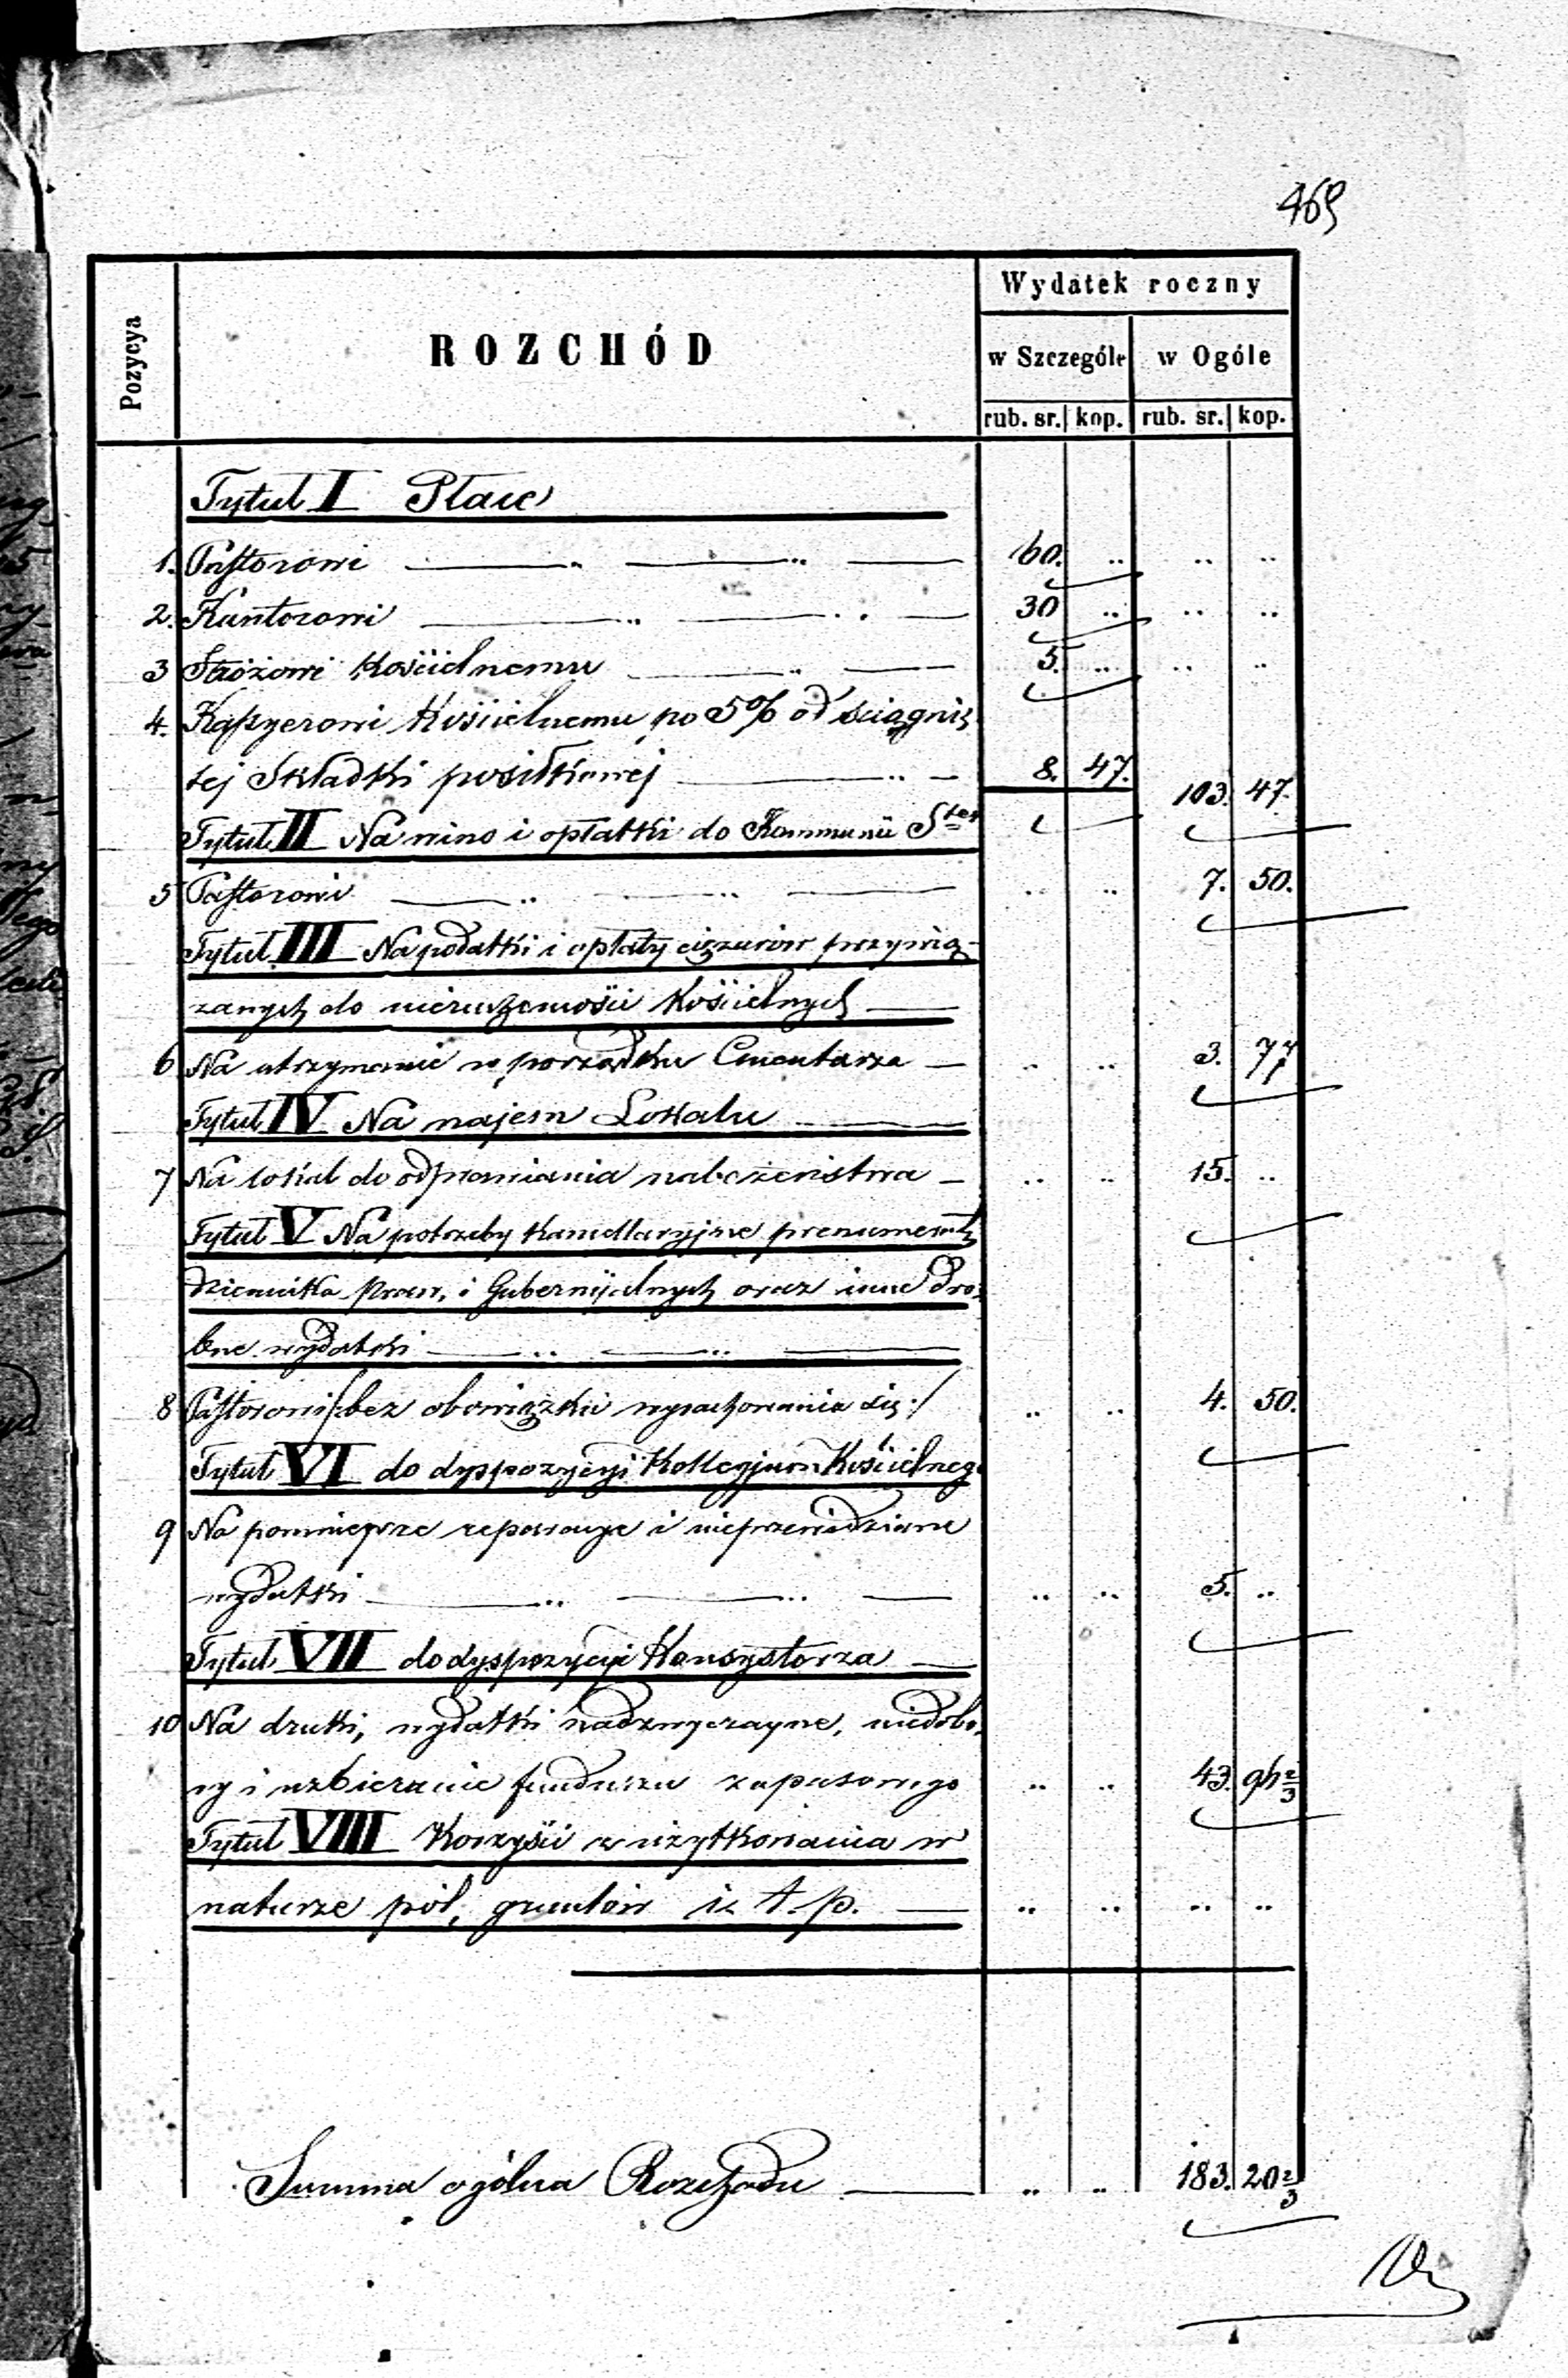 469
Wydatek roczny
Pozycya ROZCHÓD w Szczególe w Ogóle
rub. sr. kop. rub. sr. kop.
Tytuł I Płace
1. Pastorowi 60. .. .. ..
2. Kantorowi 30 .. .. ..
3 Stróżowi Kościelnemu 5. .. .. ..
4. Kassyerowi Kościelnemu po 5% od ściągnię
tej Składki posiłkowej 8. 47. 103. 47.
Tytuł II Na wino i opłatki do Kommunii Stej
5 Pastorowi .. .. 7. 50.
Tytuł III Na podatki i opłaty ciężarów przywią-
zanych do nieruchomości Kościelnych
6 Na utrzymanie w porządku Cmentarza .. .. 3. 77
Tytuł IV Na najem Lokalu
7 Na lokal do odprawiania nabożeństwa .. .. 15. ..
Tytuł V Na potrzeby Kancellaryjne prenumeratę
Dziennika Praw, i Gubernijalnych oraz inne dro-
bne wydatki
8 Pastorowi /:bez obowiązku wyrachowania się:/ .. .. 4. 50.
Tytuł VI do dyspozycyi Kollegjum Kościelnego
9 Na pomniejsze reparacye i nieprzewidziane
wydatki .. .. 5. ..
Tytuł VII do dyspozycyi Konsystorza
10 Na druki, wydatki nadzwyczayne, niedobo-
ry i uzbieranie funduszu zapasowego .. .. 43. 96 2/3
Tytuł VIII Korzyści z użytkowania w
naturze pól, gruntów i t. p. .. .. .. ..
Summa ogólna Rozchodu .. .. 183. 20 2/3